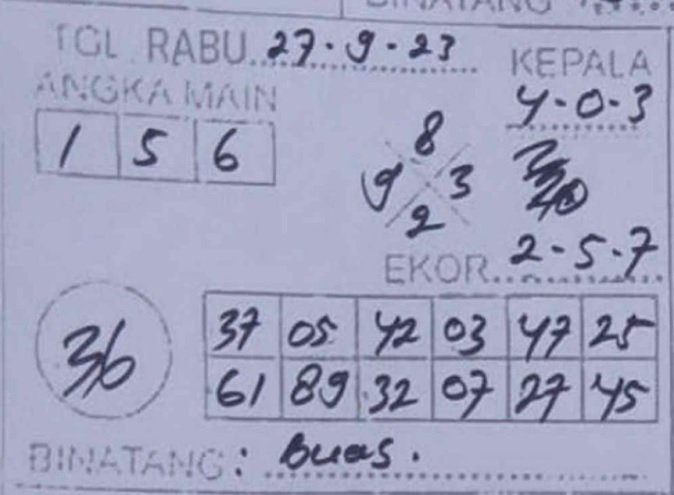 BINATANG
TGL. RABU 27-9-23
KEPALA
ANGKA MAIN
4-0-3
1 5 6
8
9 3
2
EKOR 2-5-7
36
37 05 42 03 47 25
61 89 32 07 27 45
BINATANG: Buas.